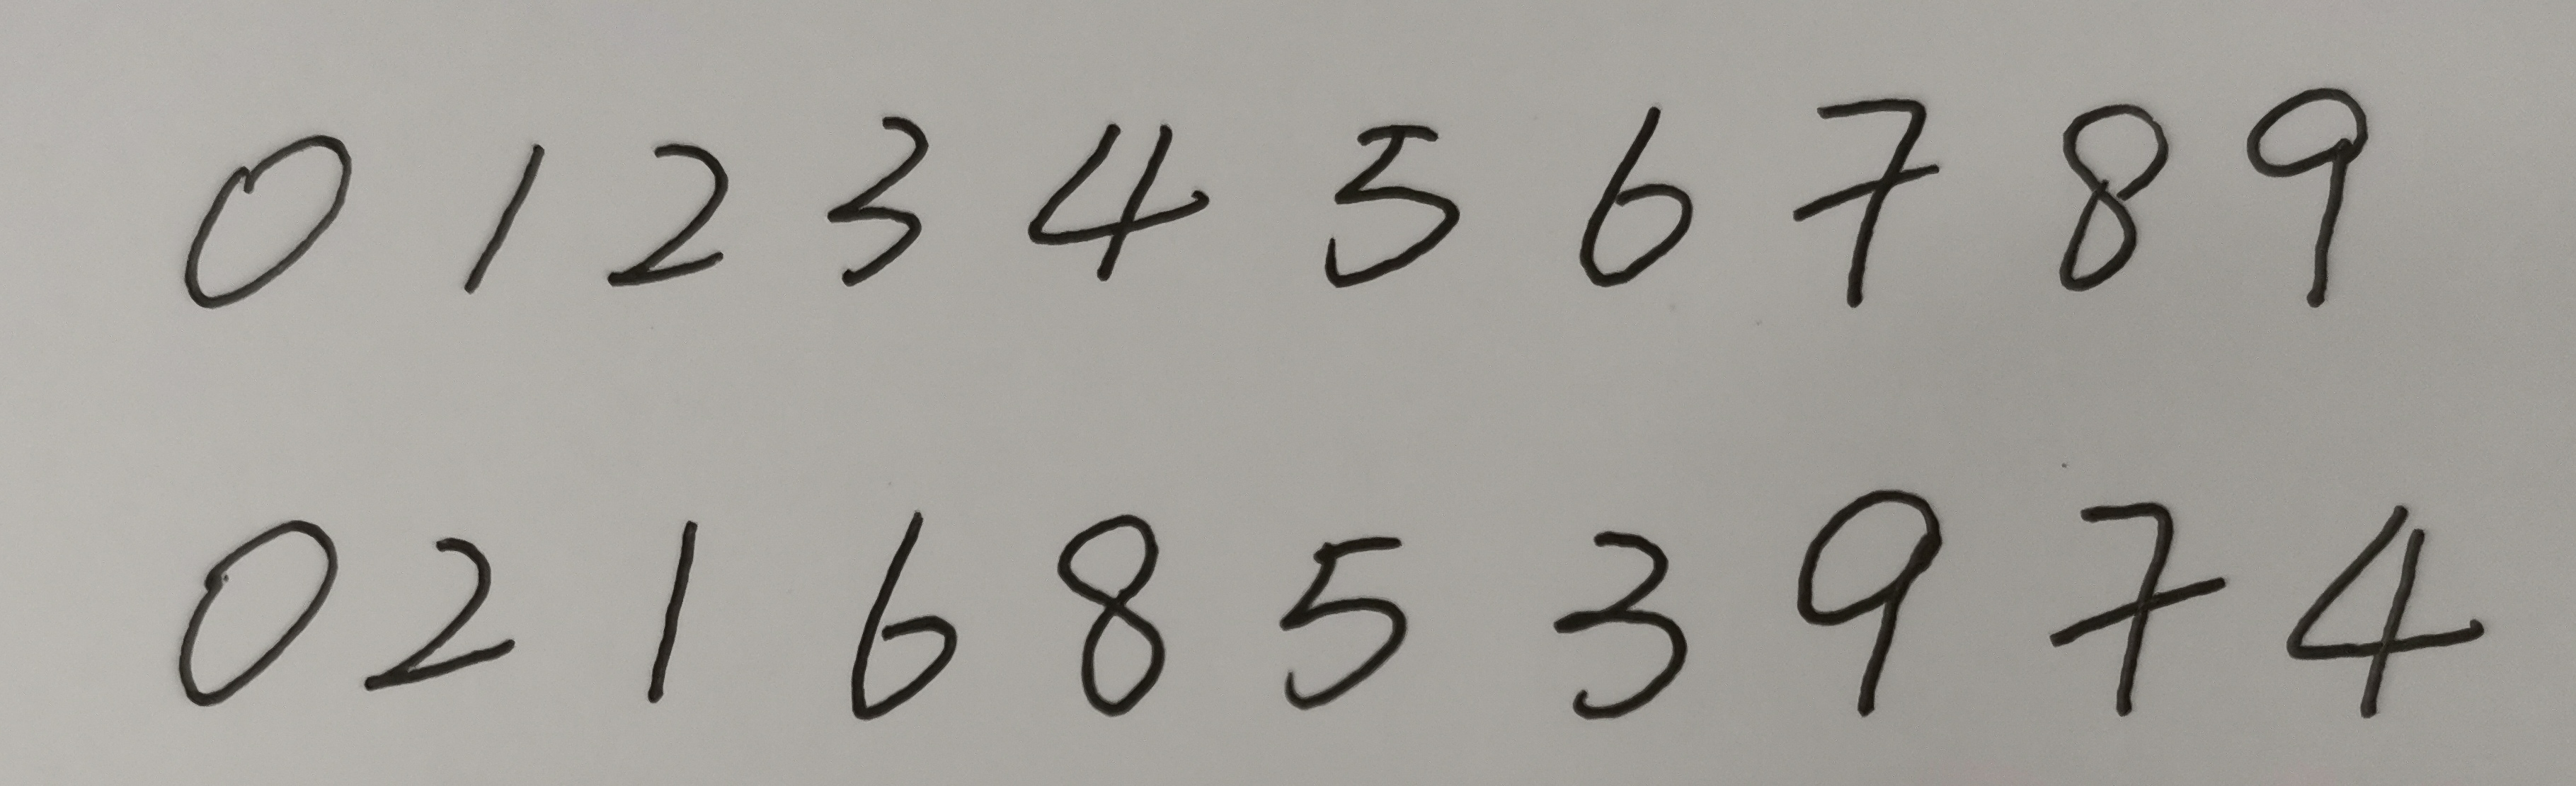 0 1 2 3 4 5 6 7 8 9
0 2 1 6 8 5 3 9 7 4